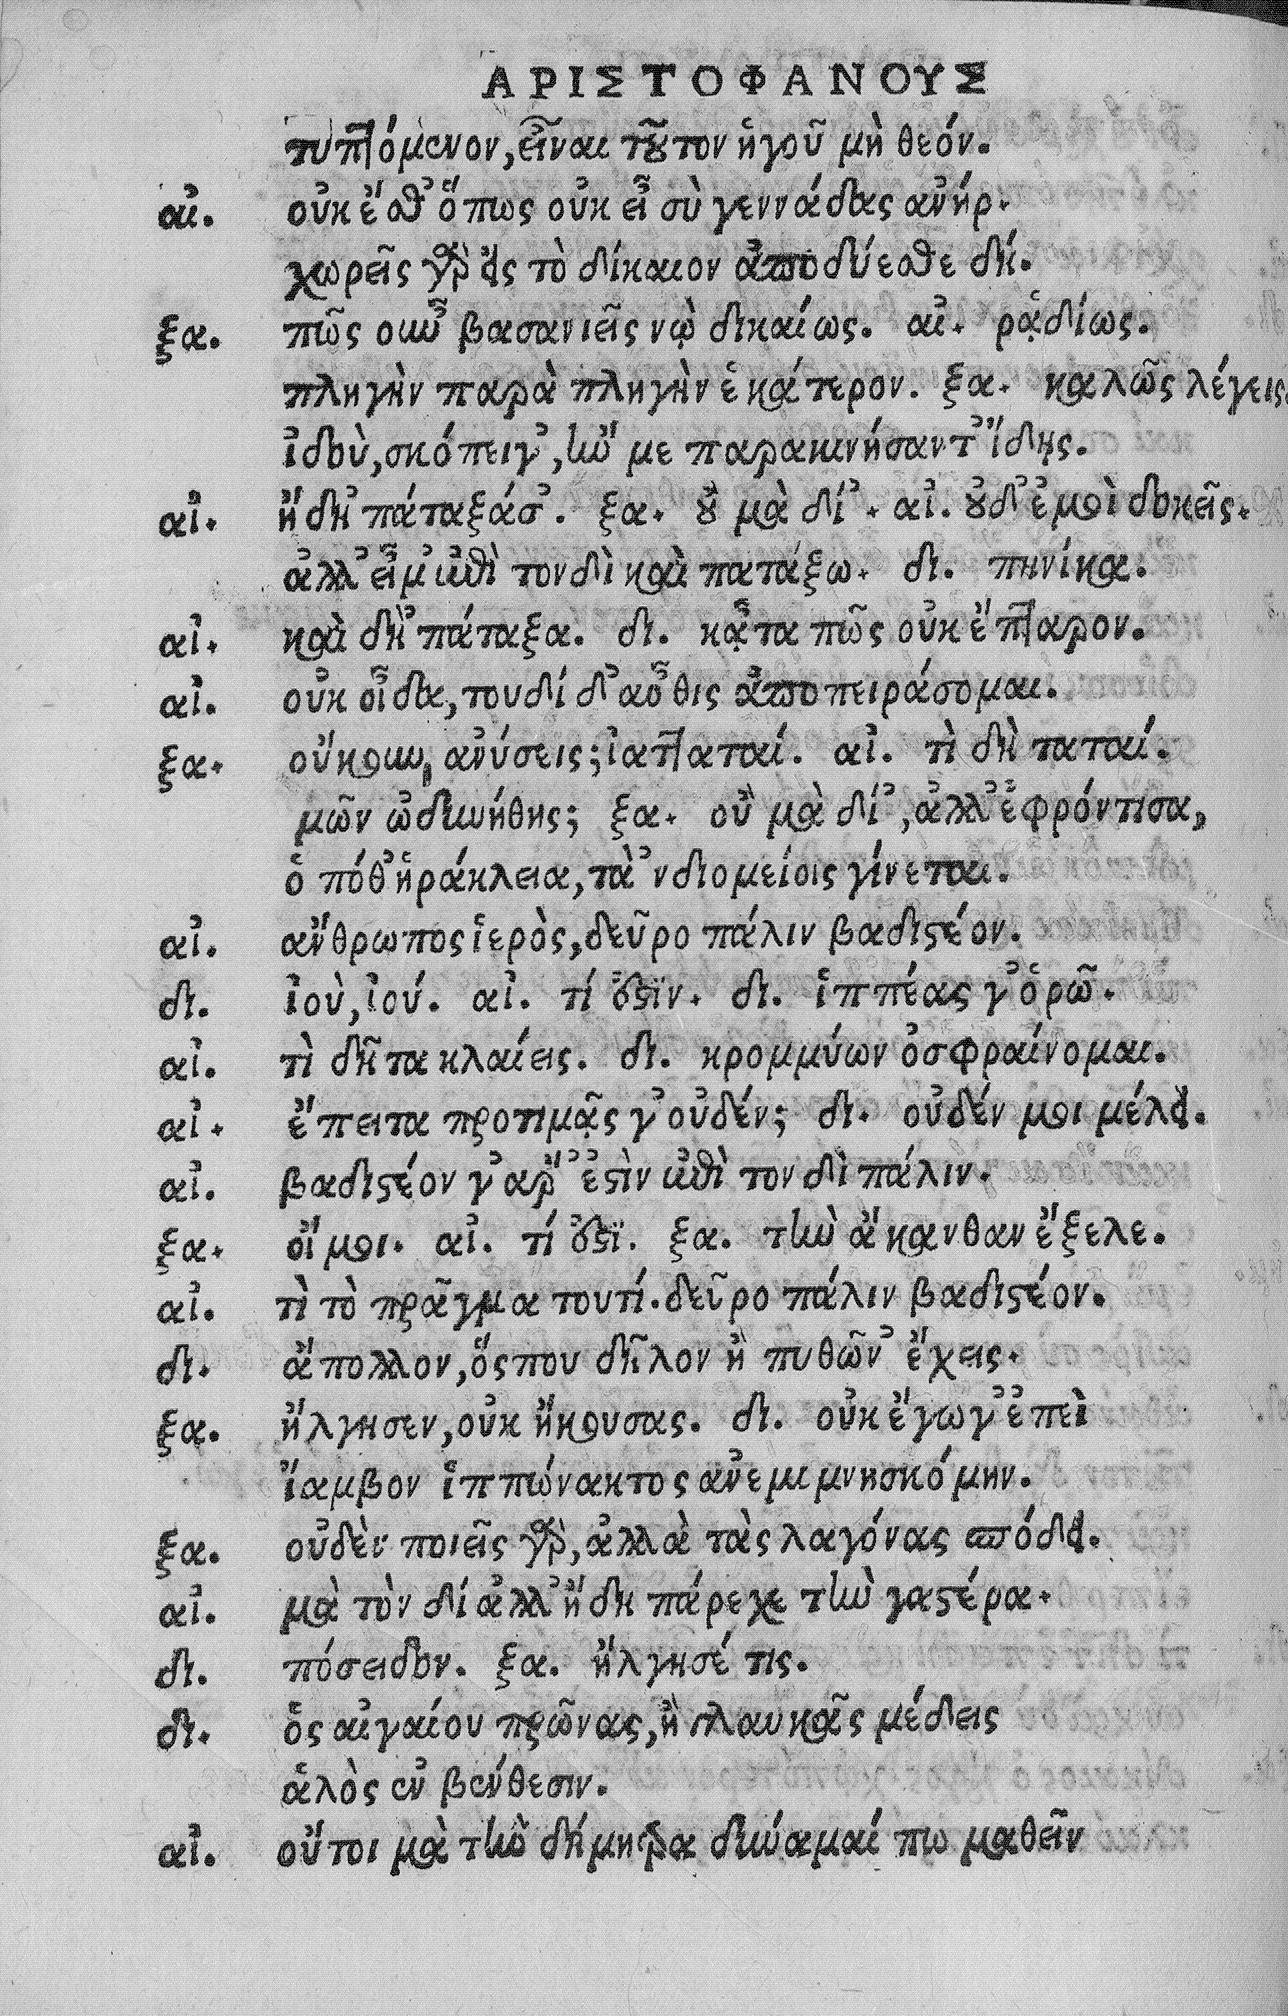 ΑΡΙΣΤΟΦΑΝΟΥΣ
τυπτόμενον, εἶναι τοῦτον ἡγοῦ μὴ θεόν.
αἰ. οὐκ ἔσθ᾽ ὅπως οὐκ εἶ σὺ γεννάδας ἀνήρ.
χωρεῖς γὰρ εἰς τὸ δίκαιον ἀποδύεσθε δή.
ξα. πῶς οὖν βασανιεῖς νῲ δικαίως. αἰ. ῥᾳδίως.
πληγὴν παρὰ πληγὴν ἑκάτερον. ξα. καλῶς λέγεις.
ἰδοὺ, σκόπει γ᾽, ἢν με παρακινήσαντ᾽ ἴδῃς.
αἰ. ἤδη ᾽πάταξά σ᾽. ξα. οὐ μὰ δί᾽. αἰ. οὐδ᾽ ἐμοὶ δοκεῖς.
ἀλλ᾽ εἶμ᾽ ἐπὶ τονδὶ καὶ πατάξω. δι. πηνίκα.
αἰ. καὶ δὴ ᾽πάταξα. δι. κᾆτα πῶς οὐκ ἔπταρον.
αἰ. οὐκ οἶδα, τουδί δ᾽ αὖθις ἀποπειράσομαι.
ξα. οὔκουν ἀνύσεις; ἰατταταί. αἰ. τὶ δὴ ταταί.
μῶν ὠδυνήθης; ξα. οὐ μὰ δί᾽, ἀλλ᾽ ἐφρόντισα,
ὁ πόθ᾽ ἡράκλεια, τὰ ᾽ν διομείοις γίνεται.
αἰ. ἄνθρωπος ἱερὸς, δεῦρο πάλιν βαδιστέον.
δι. ἰοὺ, ἰού. αἰ. τί ἐστϊν. δι. ἱππέας γ᾽ ὁρῶ.
αἰ. τὶ δῆτα κλαίεις. δι. κρομμύων ὀσφραίνομαι.
αἰ. ἔπειτα προτιμᾷς γ᾽ οὐδέν; δι. οὐδέν μοι μέλει.
αἰ. βαδιστέον γ᾽ ἄρ᾽ ἐστὶν ἐπὶ τονδὶ πάλιν.
ξα. οἴμοι. αἰ. τί ἐστϊ. ξα. τὴν ἄκανθαν ἔξελε.
αἰ. τὶ τὸ πρᾶγμα τουτί. δεῦρο πάλιν βαδιστέον.
δι. ἄπολλον, ὅς που δῆλον ἢ πυθῶν᾽ ἔχεις.
ξα. ἤλγησεν, οὐκ ἤκουσας. δι. οὐκ ἔγωγ᾽ ἐπεὶ
ἴαμβον ἱππώνακτος ἀνεμιμνησκόμην.
ξα. οὐδὲν ποιεῖς γὰρ, ἀλλὰ τὰς λαγόνας σπόδει.
αἰ. μὰ τὸν δί ἀλλ᾽ ἤδη πάρεχε τὴν γαστέρα.
δι. πόσειδον. ξα. ἤλγησέ τις.
δι. ὃς αἰγαίου πρῶνας, ἢ γλαυκᾶς μέδεις
ἁλὸς ἐν βένθεσιν.
αἰ. οὔτοι μὰ τὴν δήμητρα δύναμαί πω μαθεῖν